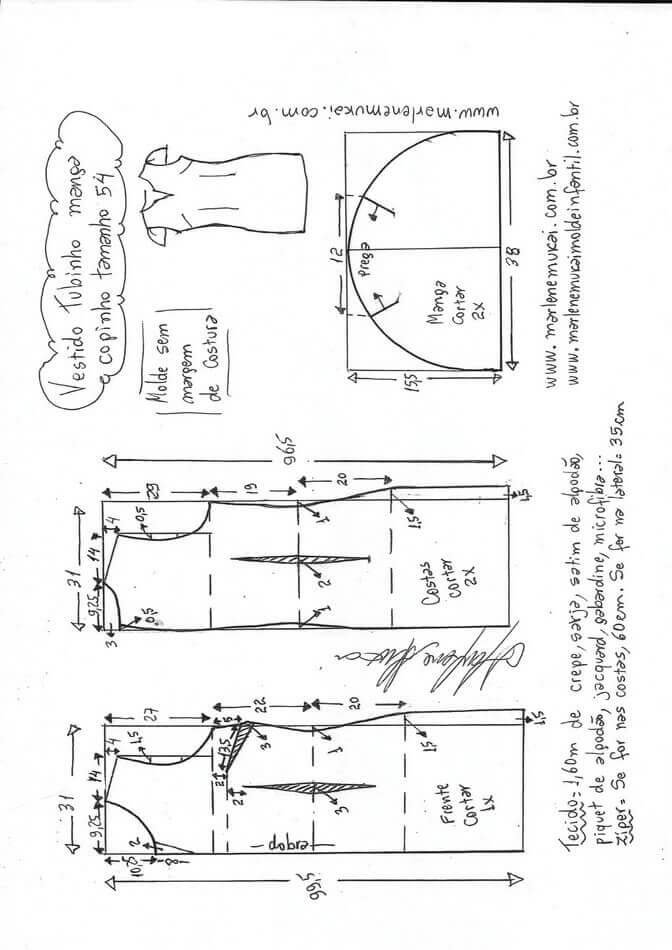 Vestido Tubinho manga
copinho tamanho 54
Molde sem
margem
de Costura
www.marlenemukai.com.br
12
Prega
38
Manga
Cortar
2x
15,5
www.marlenemukai.com.br
www.marlenemukaimoldeinfantil.com.br
96,5
29
19
20
4
0,5
1
1,5
1,5
31
14
9,25
2
3
0,5
1
Costas
cortar
2x
99,5
27
22
20
4
1,5
5
13,5
3
3
1,5
1,5
31
14
9,25
2
2
3
10,5
2
8
dobra
Frente
Cortar
1x
Tecido=1,60m de crepe, sarja, satim de algodão,
piquet de algodão, jacquard, gabardine, microfibra...
Zíper= Se for nas costas, 60cm. Se for na lateral= 35cm